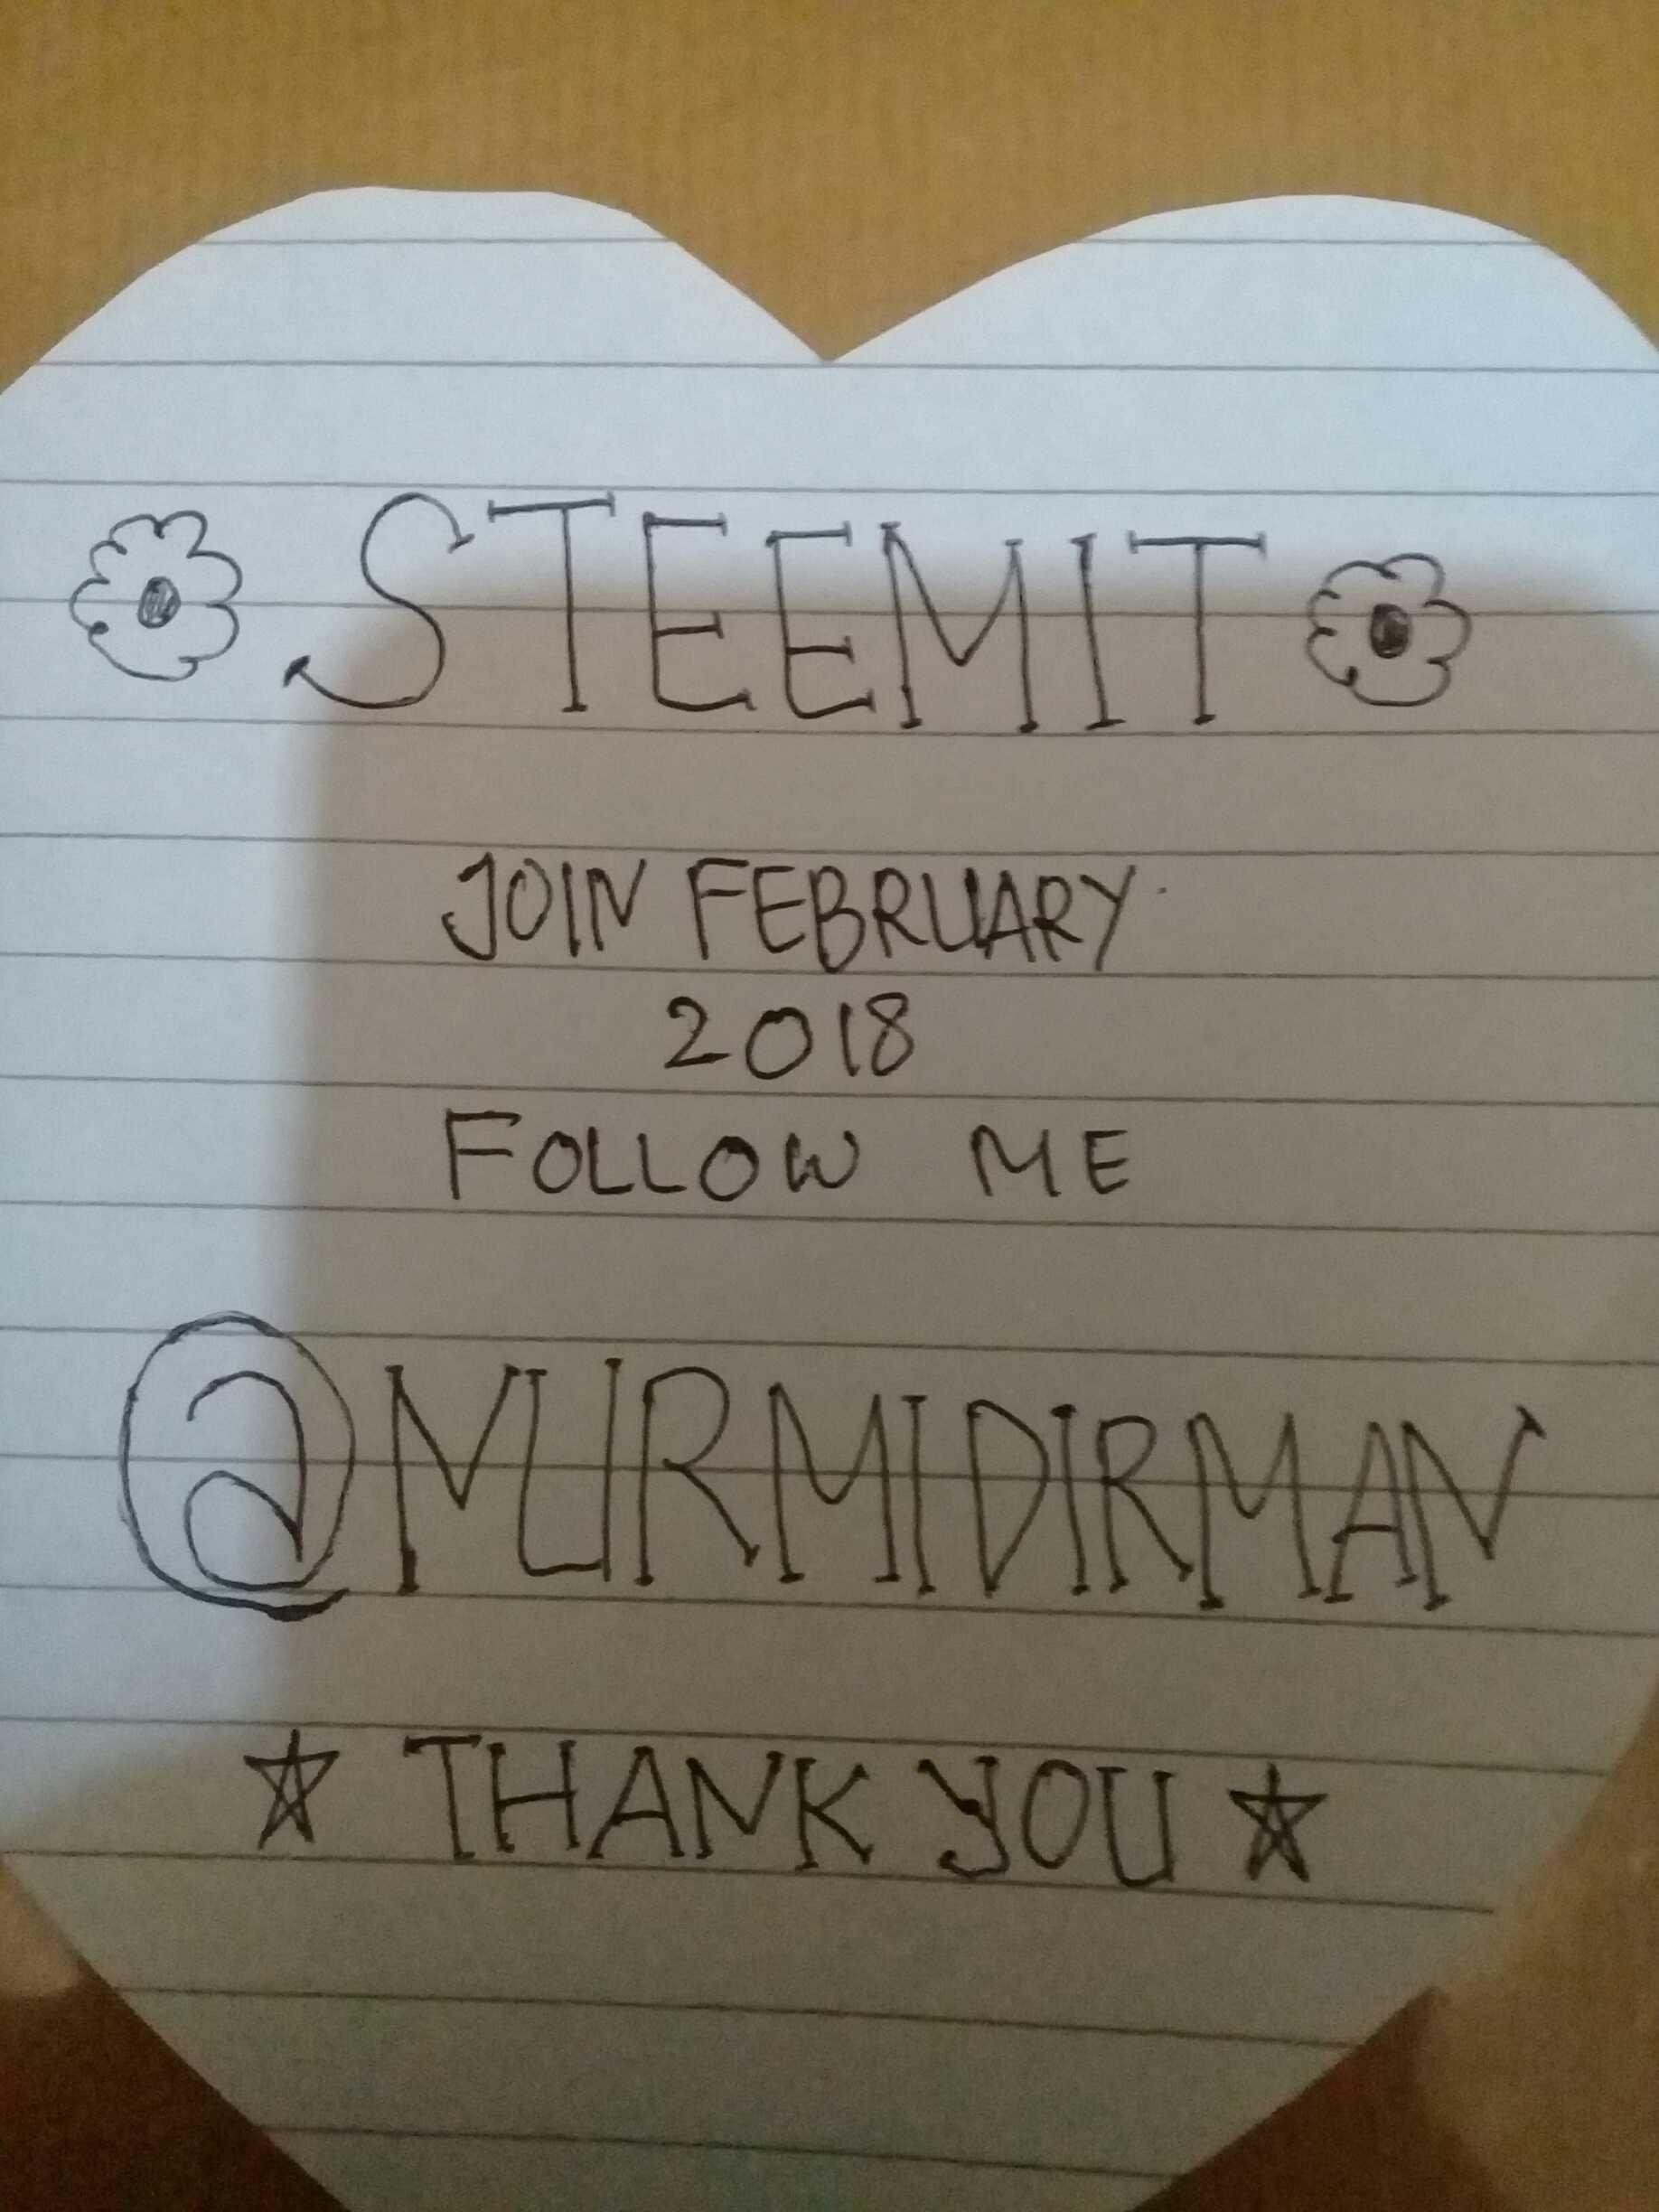 STEEMIT
JOIN FEBRUARY
2018
FOLLOW ME
@NURMIDIRMAN
THANK YOU